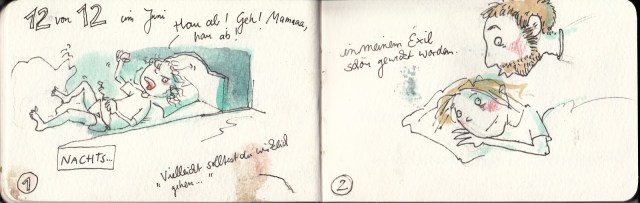 12 von 12 im Juni
Hau ab! Geh! Mamaaa,
hau ab!
NACHTS...
"Vielleicht solltest du wirklich
gehen..."
1
in meinem Exil
schon geweckt worden.
2